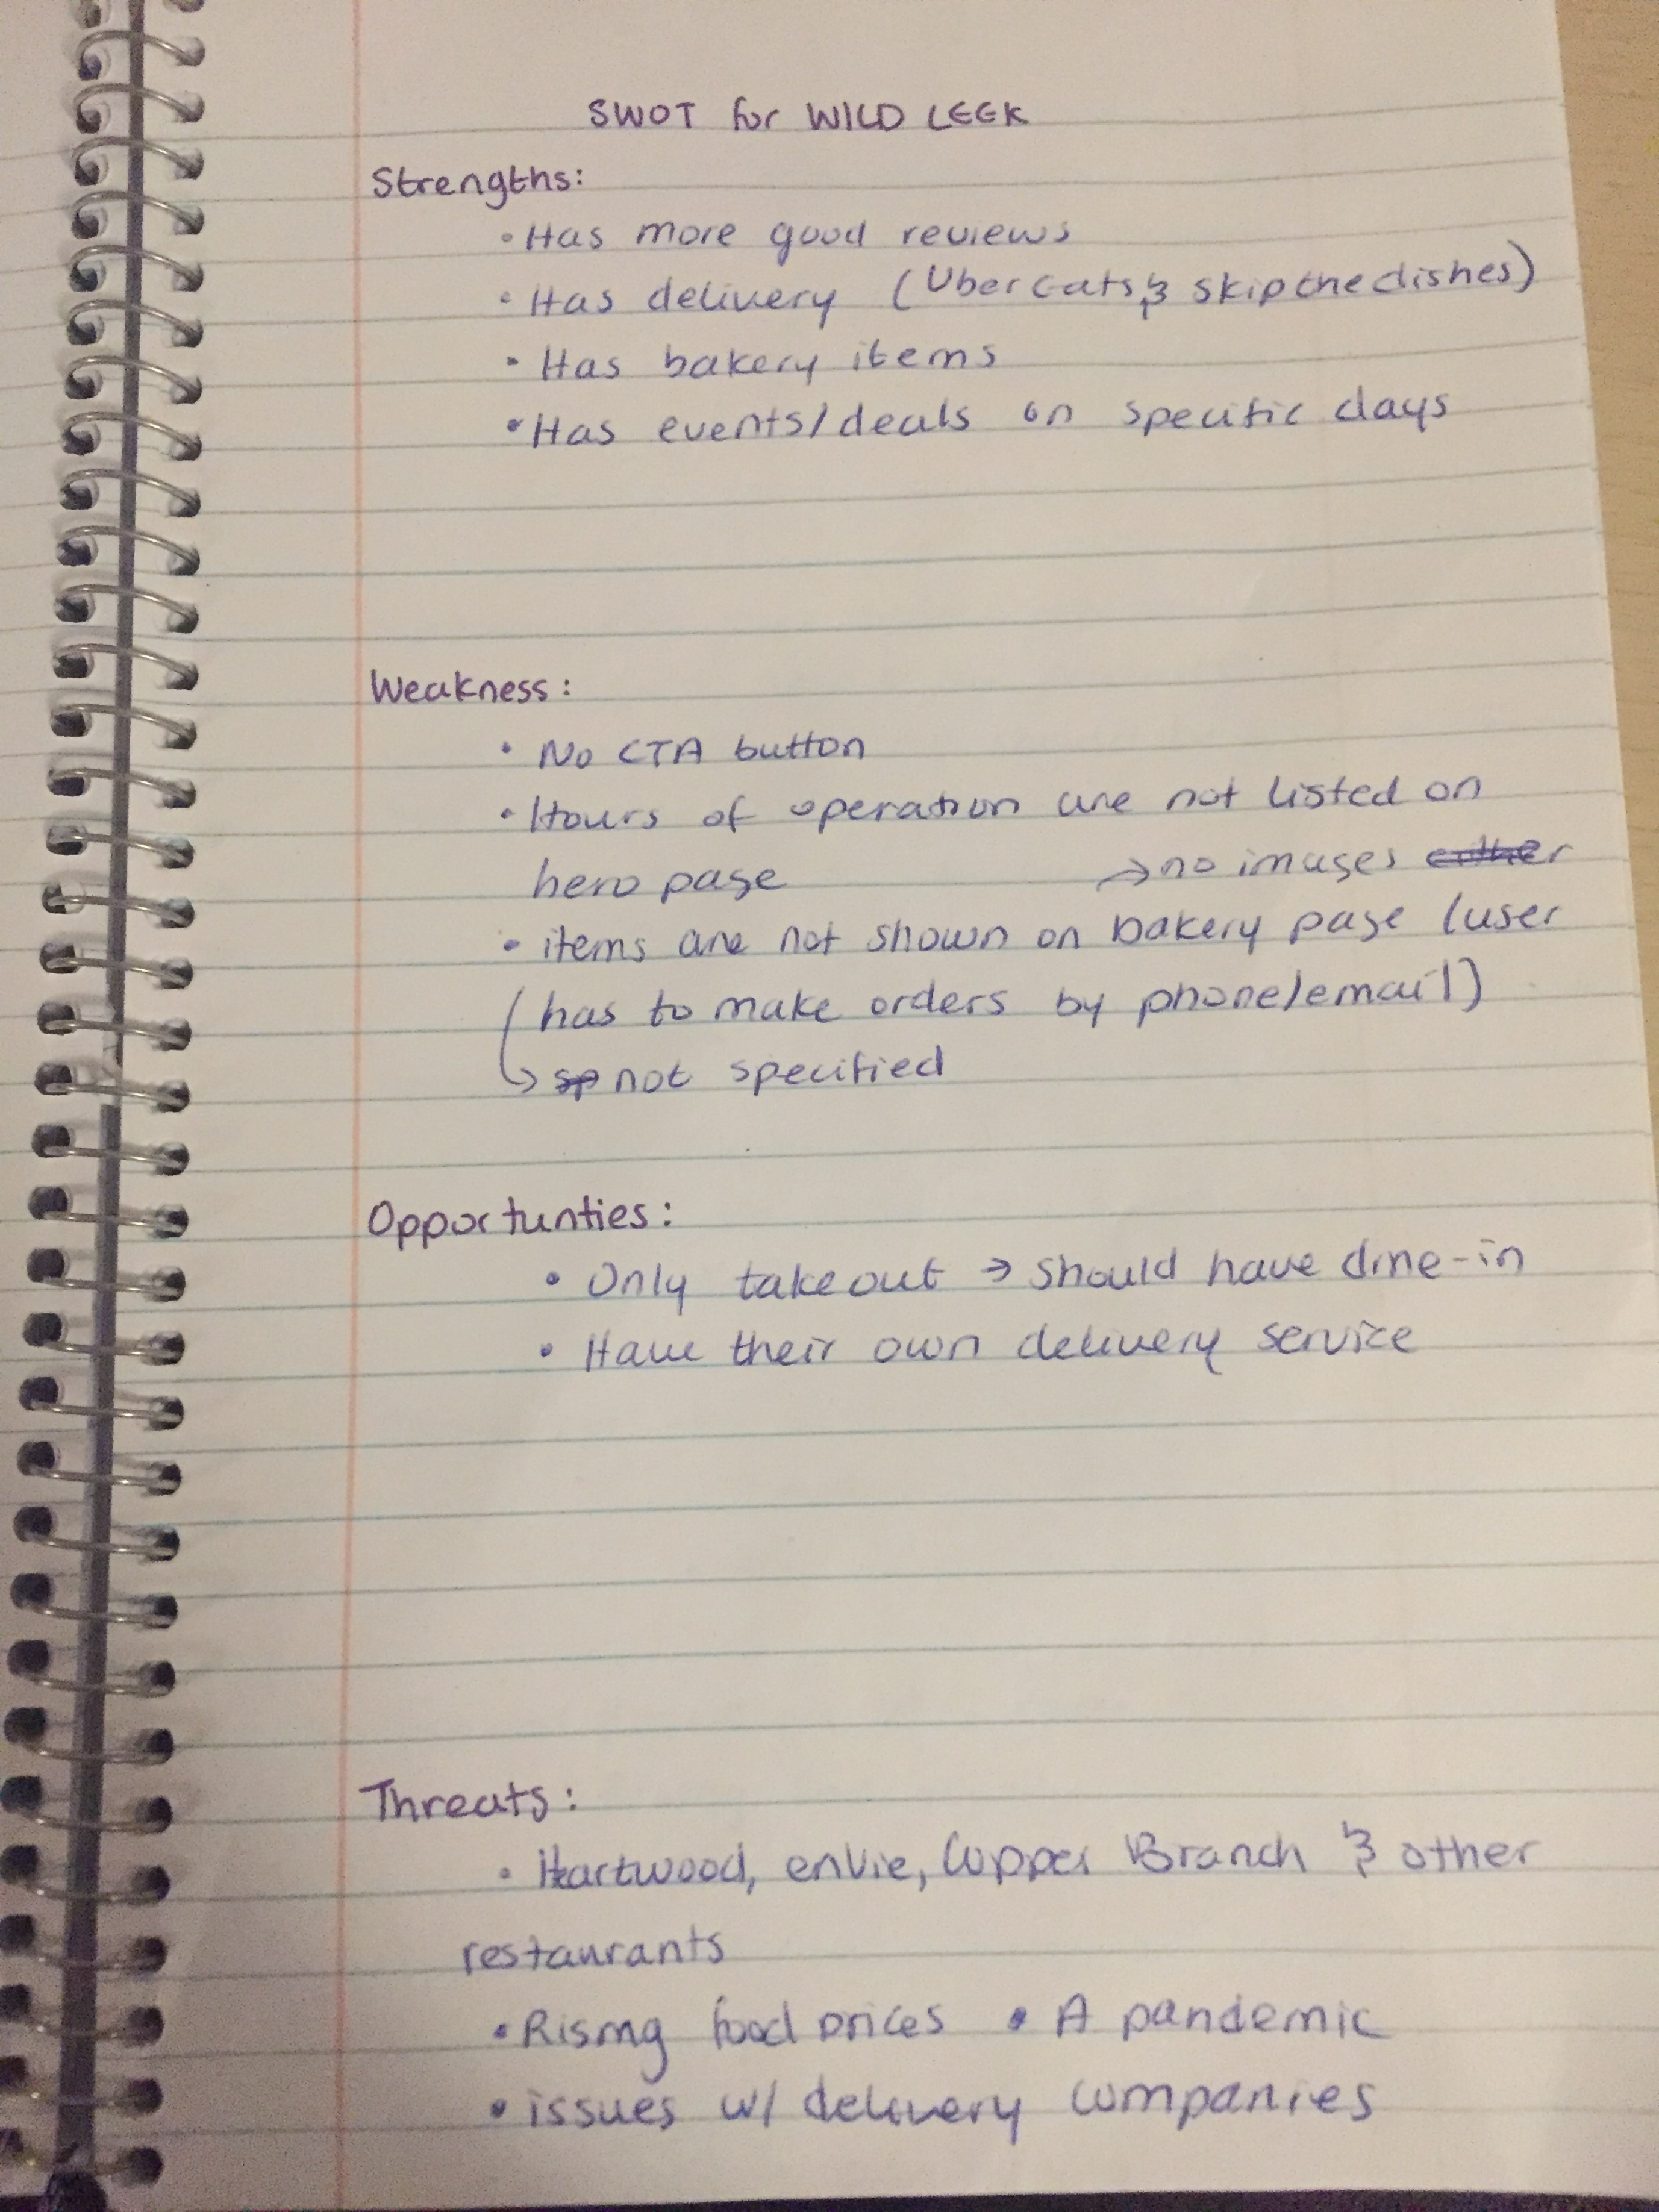 SWOT for WILD LEEK
Strengths:
• Has more good reviews
• Has delivery (Uber eats & skipthedishes)
• Has bakery items
• Has events/deals on specific days
Weakness:
• No CTA button
• Hours of operation are not listed on
hero page
→ no images either
• items are not shown on bakery page (user
has to make orders by phone/email)
↳ sp not specified
Opportunties:
• Only takeout → should have dine-in
• Have their own delivery service
Threats:
• Hartwood, enVie, Copper Branch & other
restaurants
• Rising food prices • A pandemic
• issues w/ delivery companies